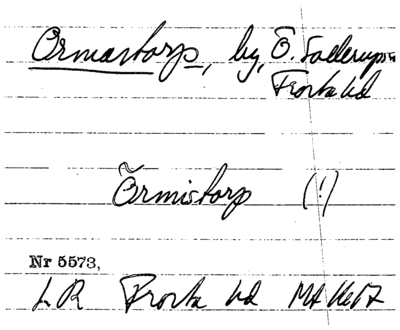 Ormastorp, by, Ö. Sallerups sn
Frosta hd
Õrmistorp (!)
Nr 5573,
LR Frosta hd